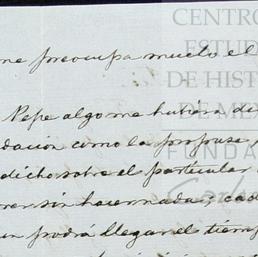 me preocupa mucho el
Pepe algo me hubiera di
dacion como la propuse,
dicho sobre el particular
sin hacer nada; cad
un podrá llegar el tiemp
CENTRO
ESTUD
DE HIST
DE MEX
FUNDA
Carlos